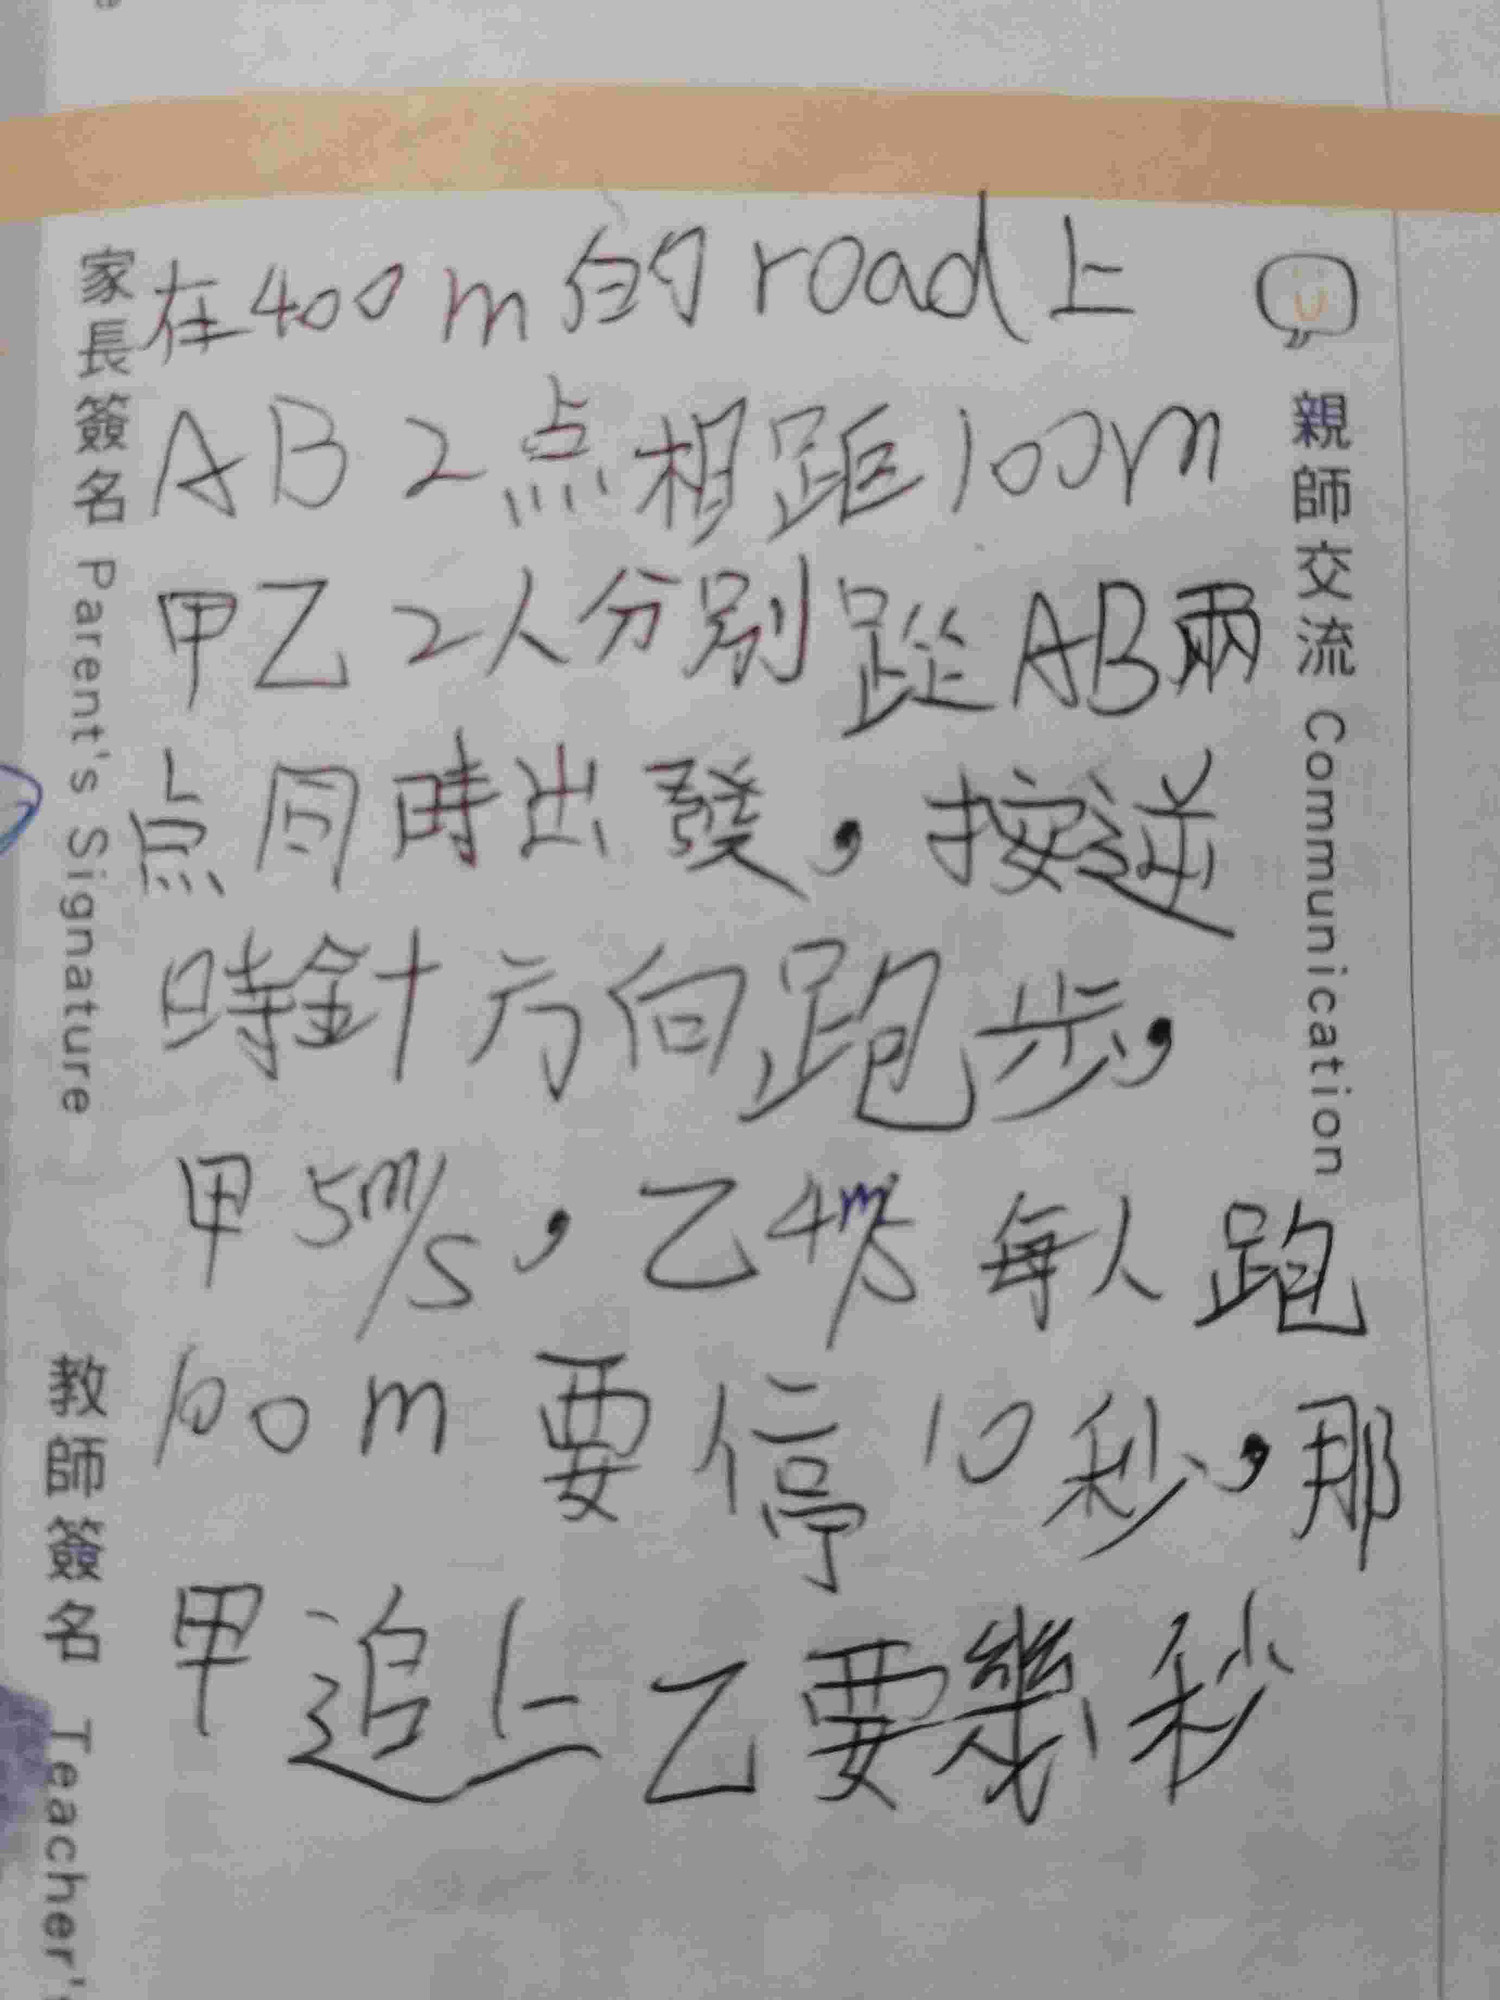 在400m的road上
AB 2点相距100m
甲乙2人分別 AB兩
点同時出發，按逆
時針方向跑步，
甲5m/s，乙4m/s每人跑
100m要停10秒，那
甲追上乙要幾秒
家長簽名 Parent's Signature
教師簽名 Teacher's
親師交流 Communication